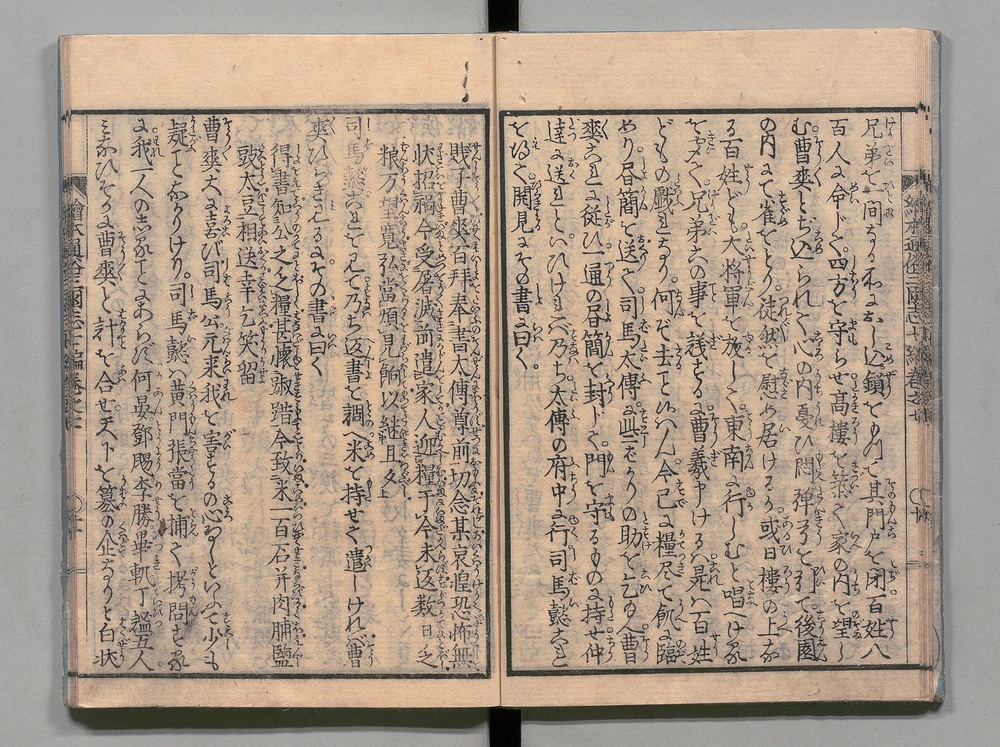 兄弟を一間なる所におし込鎖をのけて其門戸を閉百姓八
百人に命じて四方を守らせ高樓を築て家の内を望し
む曹爽とぢ込られて心の内憂ひ悶弾弓を打て後園
の内にて雀をとり徒然を慰め居けるが或日樓の上な
る百姓ども大将軍を放して東南に行しむと唱へける
を聞て兄弟此事を議する曹羲申ける是八百姓
どもの戯言なり何ぞ去とせん今已に糧尽て飢に臨
めり呂簡を送て司馬太傅に些ばかりの助を乞ん曹
爽これに従ひ一通の呂簡を封じて門を守るものに持せ仲
達に送れといひければ乃ち太傅の府中に行司馬懿これ
を得て開見にその書に曰く
賤子曹爽百拜奉書太傅尊前切念某哀惶恐怖無
状招禍今受屠滅前遣家人迎糧于今未返数日乏
粮万望寛弘當煩見餉以継旦夕
司馬懿これを見て乃ち返書を調へ米を持せて遣しければ曹
爽ひらき見るにその書に曰く
得書知公之乏糧甚懐踧踖今致米一百石并肉脯鹽
豉大豆相送幸乞笑留
曹爽大に喜び司馬公元来我を害するの心なしといふて少も
疑てなかりけり司馬懿ハ黄門張當を捕て拷問する
に我一人の志にてあらず何晏鄧颺李勝畢軌丁謐五人
曹爽と計を合せ天下を簒の企なりと白状
繪本通俗三國志七編巻之七